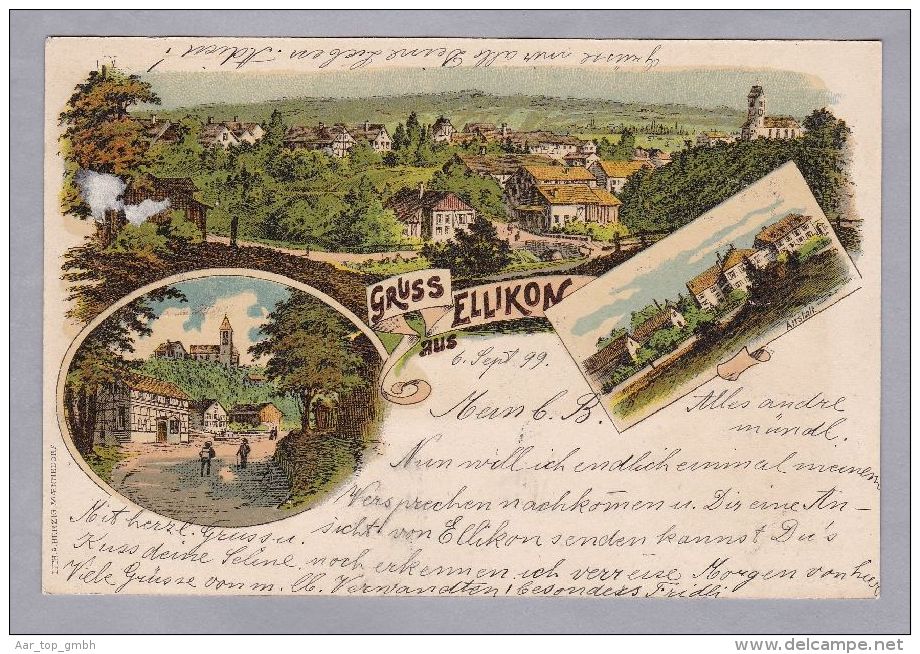 Grüsse mir alle Deine Lieben. Adieu!
GRUSS
AUS
ELLIKON
Anstalt
6. Sept. 99.
Mein l. B.
Alles andre
mündl.
Nun will ich endlich einmal meinem
Versprechen nachkom̄en u. Dir eine An-
sicht von Ellikon senden kannst Du's
noch erkennen. ich verreise Morgen von hier
Mit herzl. Gruss u.
Kuss deine Seline
Viele Grüsse von m. lb. Verwandten, besonders Fridli
LITH. A. HERZIG, MÆNNEDORF
Aar_top_gmbh
www.delcampe.net